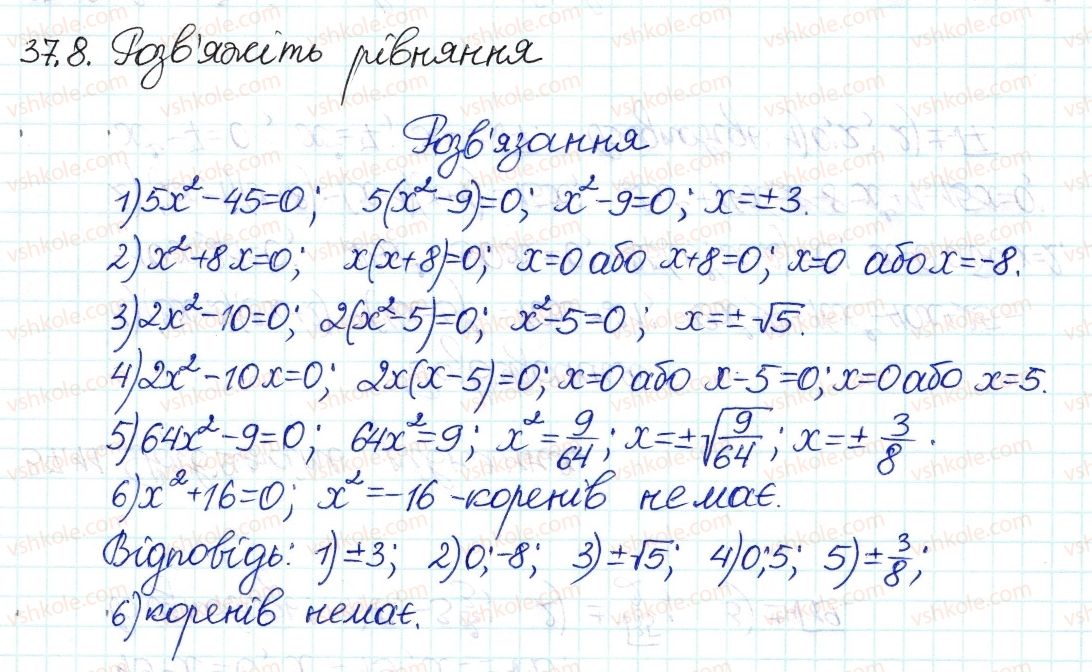 37.8. Розв'яжіть рівняння
Розв'язання
1) 5x² − 45 = 0; 5(x² − 9) = 0; x² − 9 = 0; x = ±3.
2) x² + 8x = 0; x(x + 8) = 0; x = 0 або x + 8 = 0; x = 0 або x = −8.
3) 2x² − 10 = 0; 2(x² − 5) = 0; x² − 5 = 0; x = ±√5.
4) 2x² − 10x = 0; 2x(x − 5) = 0; x = 0 або x − 5 = 0; x = 0 або x = 5.
5) 64x² − 9 = 0; 64x² = 9; x² = 9/64; x = ±√(9/64); x = ± 3/8.
6) x² + 16 = 0; x² = −16 - коренів немає.
Відповідь: 1) ±3; 2) 0; −8; 3) ±√5; 4) 0; 5; 5) ± 3/8;
6) коренів немає.